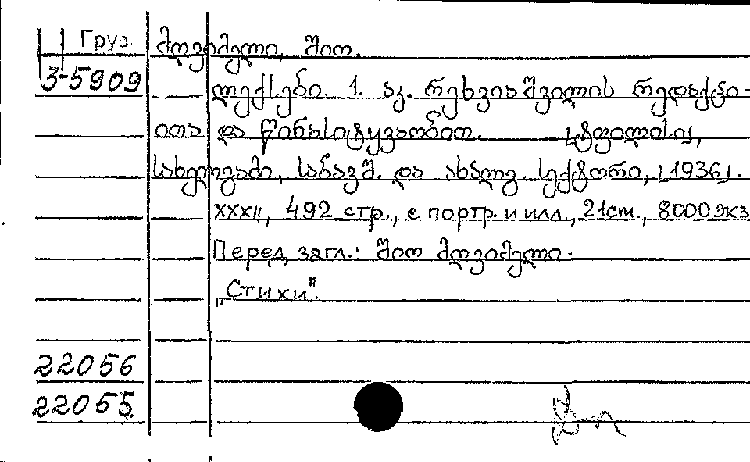 Груз. მღვიმელი, შიო.
3-5909 ლექსები. 1. აკ. რუხვიაშვილის რედაქცი-
ითა და წინასიტყვაობით. [ტფილისი],
სახელგამი, საბავშ. და ახალგ. სექტორი, [1936].
XXXII, 492 стр., с портр. и илл., 21cm., 8000 экз
Перед загл.: შიო მღვიმელი.
„Стихи".
22056
22055